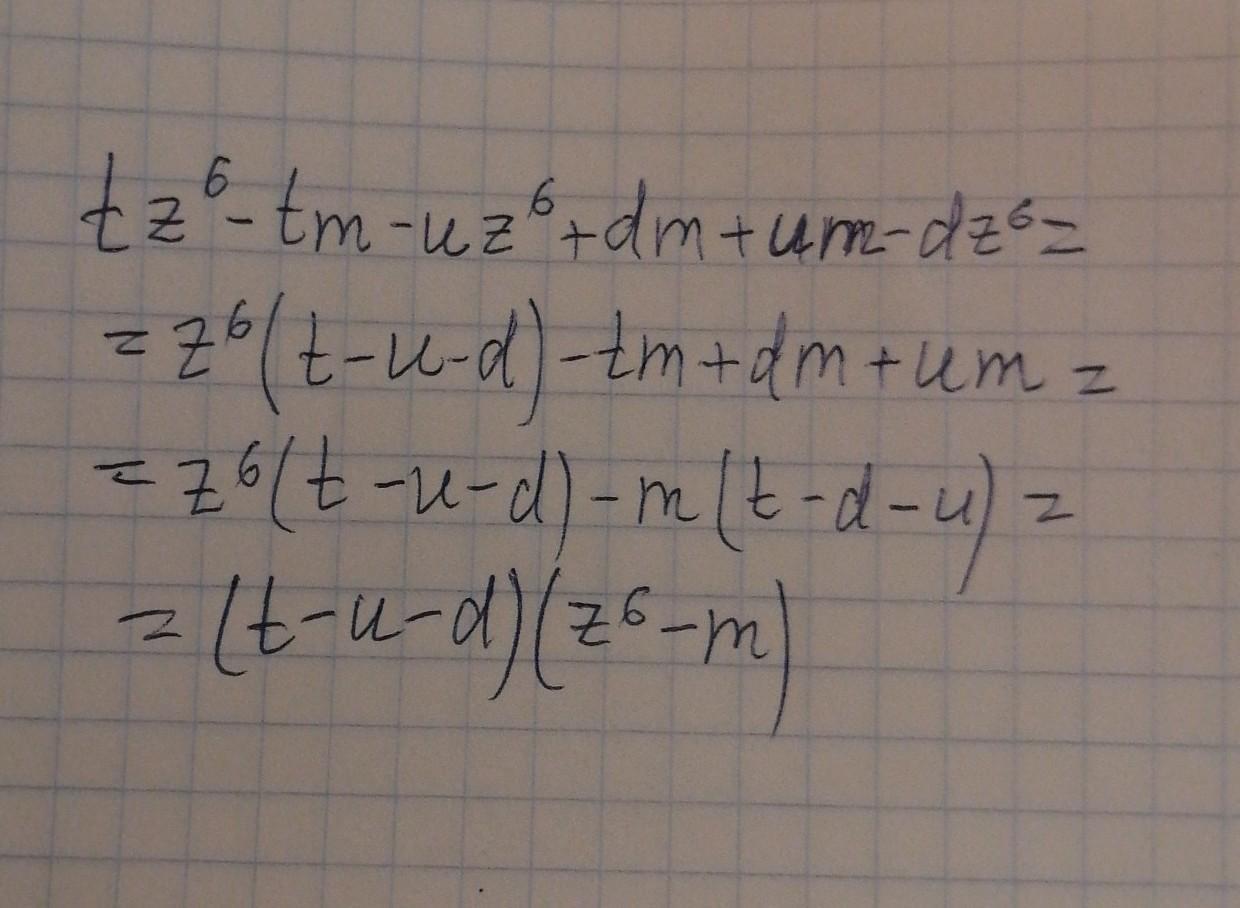 tz⁶-tm-uz⁶+dm+um-dz⁶=
=z⁶(t-u-d)-tm+dm+um=
=z⁶(t-u-d)-m(t-d-u)=
=(t-u-d)(z⁶-m)